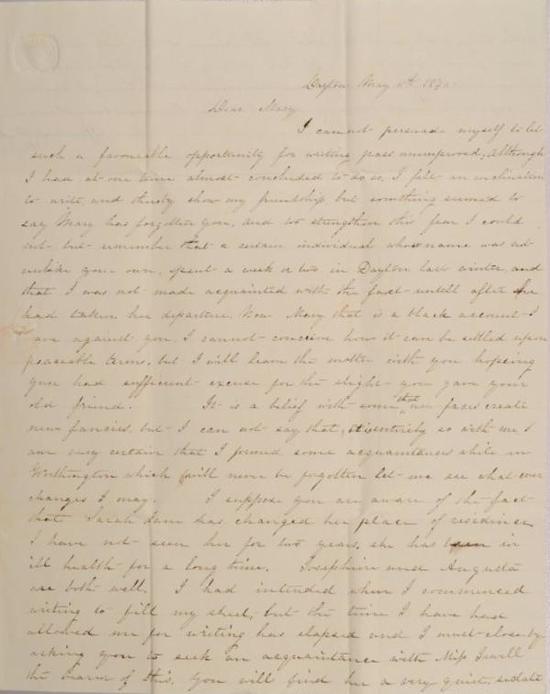 Dayton May
Dear Mary
I cannot persuade myself to let
such a favourable opportunity for writing pass unimproved, although
I had at one time almost concluded to do so, I felt an inclination
to write and thereby show my friendship but something seemed to
say Mary has forgotten you, and too strengthen this fear I could
not but remember that a certain individual whose name was not
unlike your own, spent a week or two in Dayton last winter, and
that I was not made acquainted with the fact untill after she
had taken her departure. Now Mary that is a black account I
have against you I cannot conceive how it can be settled upon
peaceable terms, but I will leave the matter with you hopeing
you had sufficient excuse for the slight you gave your
old friend. It is a belief with some that new faces create
new fancies, but I can not say that, it is entirely so with me I
am very certain that I formed some acquaintances while in
Worthington which will never be forgotten let me see what ever
changes I may. I suppose you are aware of the fact
that Sarah has changed her place of residence
I have not seen her for two years, she has been in
ill health for a long time. Josephine and Augusta
are both well. I had intended when I commenced
writing to fill my sheet, but the time I have here
allowed me for writing has elapsed and I must close by
asking you to seek an acquaintance with Miss
the bearer of this. You will find her a very quiet, sedate